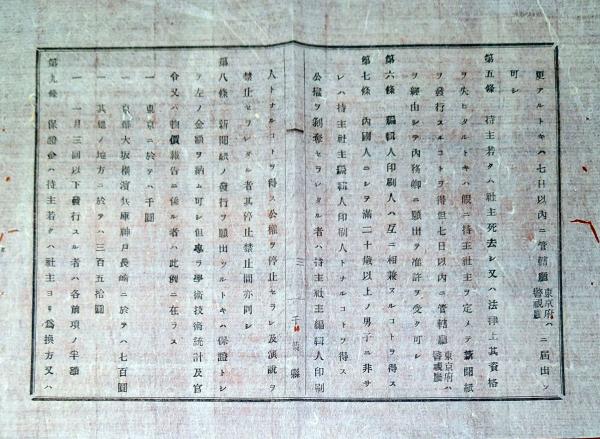 更アルトキハ七日以内ニ管轄廳東京府ハ警視廳ニ届出ツ
可シ
第五條 持主若クハ社主死去シ又ハ法律上其資格
ヲ失ヒタルトキハ假ニ持主社主ヲ定メテ新聞紙
ヲ發行スルコトヲ得但七日以内ニ管轄廳東京府ハ警視廳
ヲ經由シテ内務卿ニ願出テ准許ヲ受ク可シ
第六條 編輯人印刷人ハ互ニ相兼スルコトヲ得ス
第七條 内國人ニシテ滿二十歳以上ノ男子ニ非サ
レハ持主社主編輯人印刷人トナルコトヲ得ス
公權ヲ剥奪セラレタル者ハ持主社主編輯人印刷
三 千葉縣
人トナルコトヲ得ス公權ヲ停止セラレ及演説ヲ
禁止セラレタル者其停止禁止間亦同シ
第八條 新聞紙ノ發行ヲ願出ツルトキハ保證トシ
テ左ノ金額ヲ納ム可シ但專ラ學術技術統計及官
令又ハ物價報告ニ係ル者ハ此例ニ在ラス
一 東京ニ於テハ千圓
一 京都大坂横濱兵庫神戸長崎ニ於テハ七百圓
一 其他ノ地方ニ於テハ三百五拾圓
一 一月三回以下發行スル者ハ各前項ノ半額
第九條 保證金ハ持主若クハ社主ヨリ爲換方又ハ